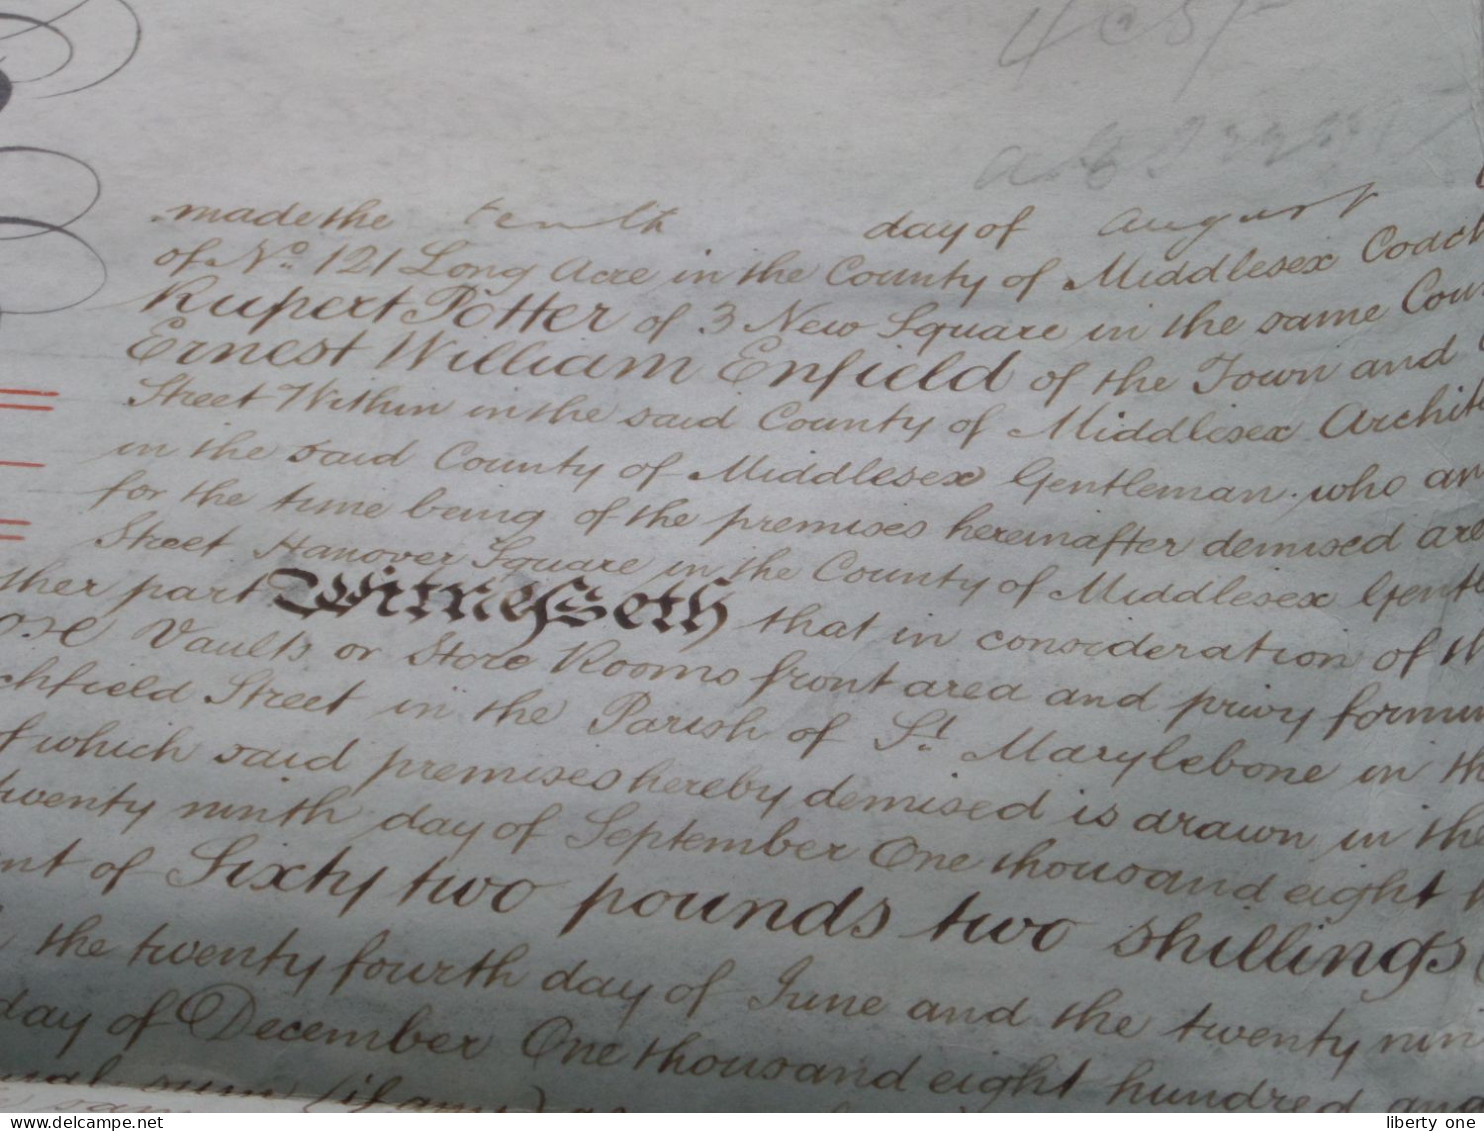 made the tenth day of August
of No. 121 Long Acre in the County of Middlesex Coach
Rupert Potter of 3 New Square in the same
Ernest William Enfield of the Town and
Street Within in the said County of Middlesex
in the said County of Middlesex Gentleman who
for the time being of the premises hereinafter demised are
Street Hanover Square in the County of Middlesex
part Witnesseth that in consideration of
Vaults or Store Rooms front area and privy
Street in the Parish of St. Marylebone in
which said premises hereby demised is drawn in
twenty ninth day of September One thousand eight
of Sixty two pounds two shillings
the twenty fourth day of June and the twenty
day of December One thousand eight hundred
sum (if any)
delcampe.net
liberty one